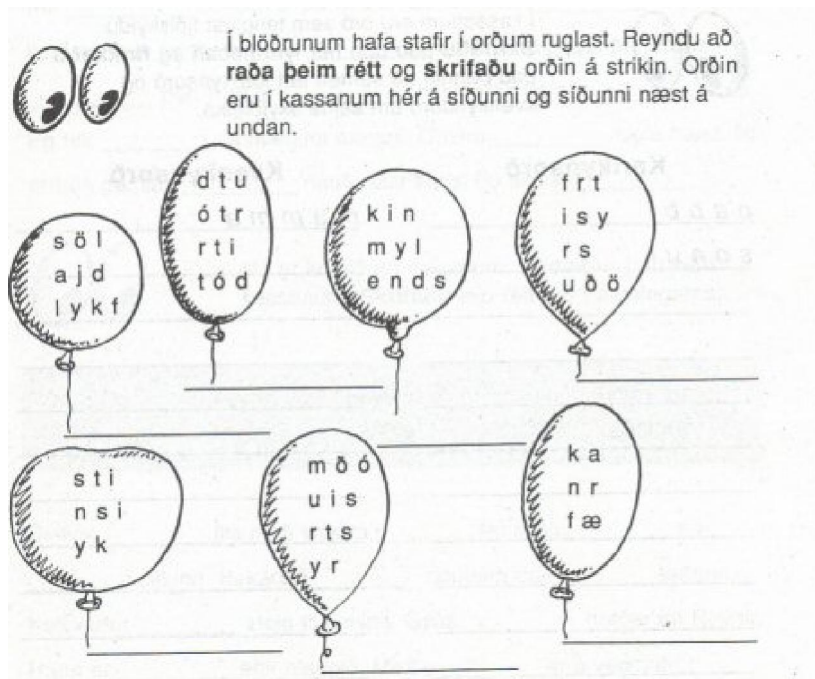 Í blöðrunum hafa stafir í orðum ruglast. Reyndu að
raða þeim rétt og skrifaðu orðin á strikin. Orðin
eru í kassanum hér á síðunni og síðunni næst á
undan.
s ö l
a j d
l y k f
d t u
ó t r
r t i
t ó d
k i n
m y l
e n d s
f r t
i s y
r s
u ð ö
s t i
n s i
y k
m ð ó
u i s
r t s
y r
k a
n r
f æ